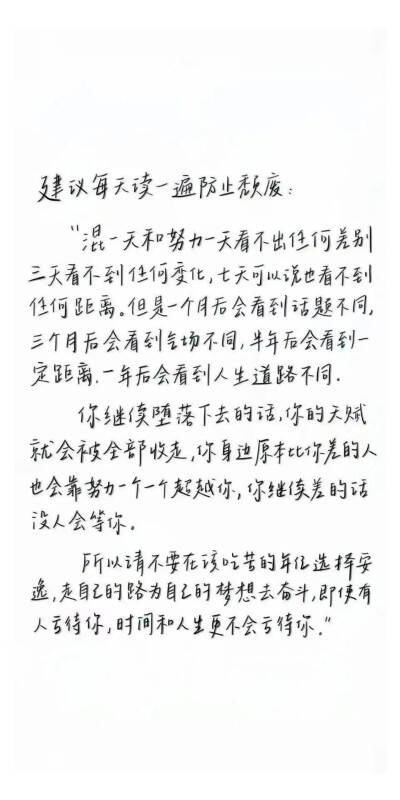 建议每天读一遍防止颓废：
“混一天和努力一天看不出任何差别
三天看不到任何变化，七天可以说也看不到
任何距离。但是一个月后会看到话题不同，
三个月后会看到气场不同，半年后会看到一
定距离.一年后会看到人生道路不同.
你继续堕落下去的话，你的天赋
就会被全部收走，你身边原本比你差的人
也会靠努力一个一个超越你，你继续差的话
没人会等你。
所以请不要在该吃苦的年纪选择安
逸，走自己的路为自己的梦想去奋斗，即便有
人亏待你，时间和人生更不会亏待你.”